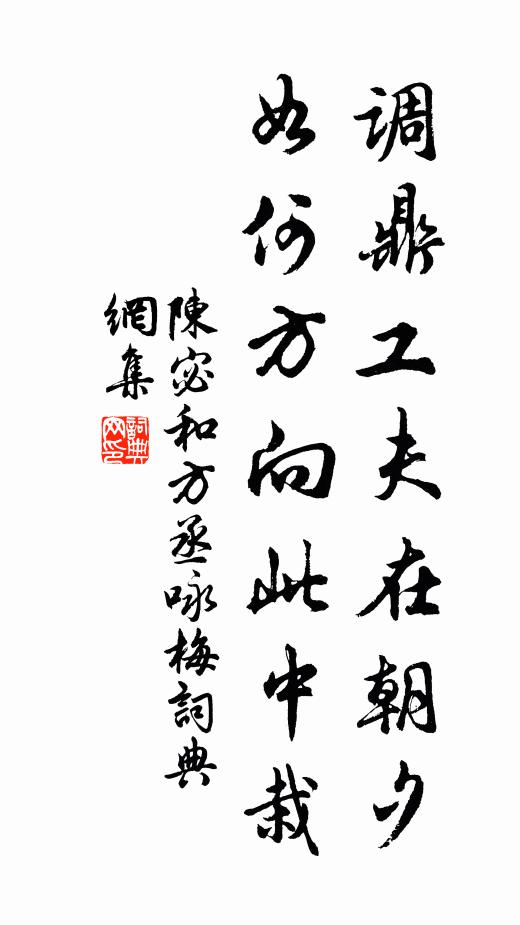 调鼎工夫在朝夕
如何方向此中栽
陳宓和方丞咏梅詞典
網集
詞典
网印